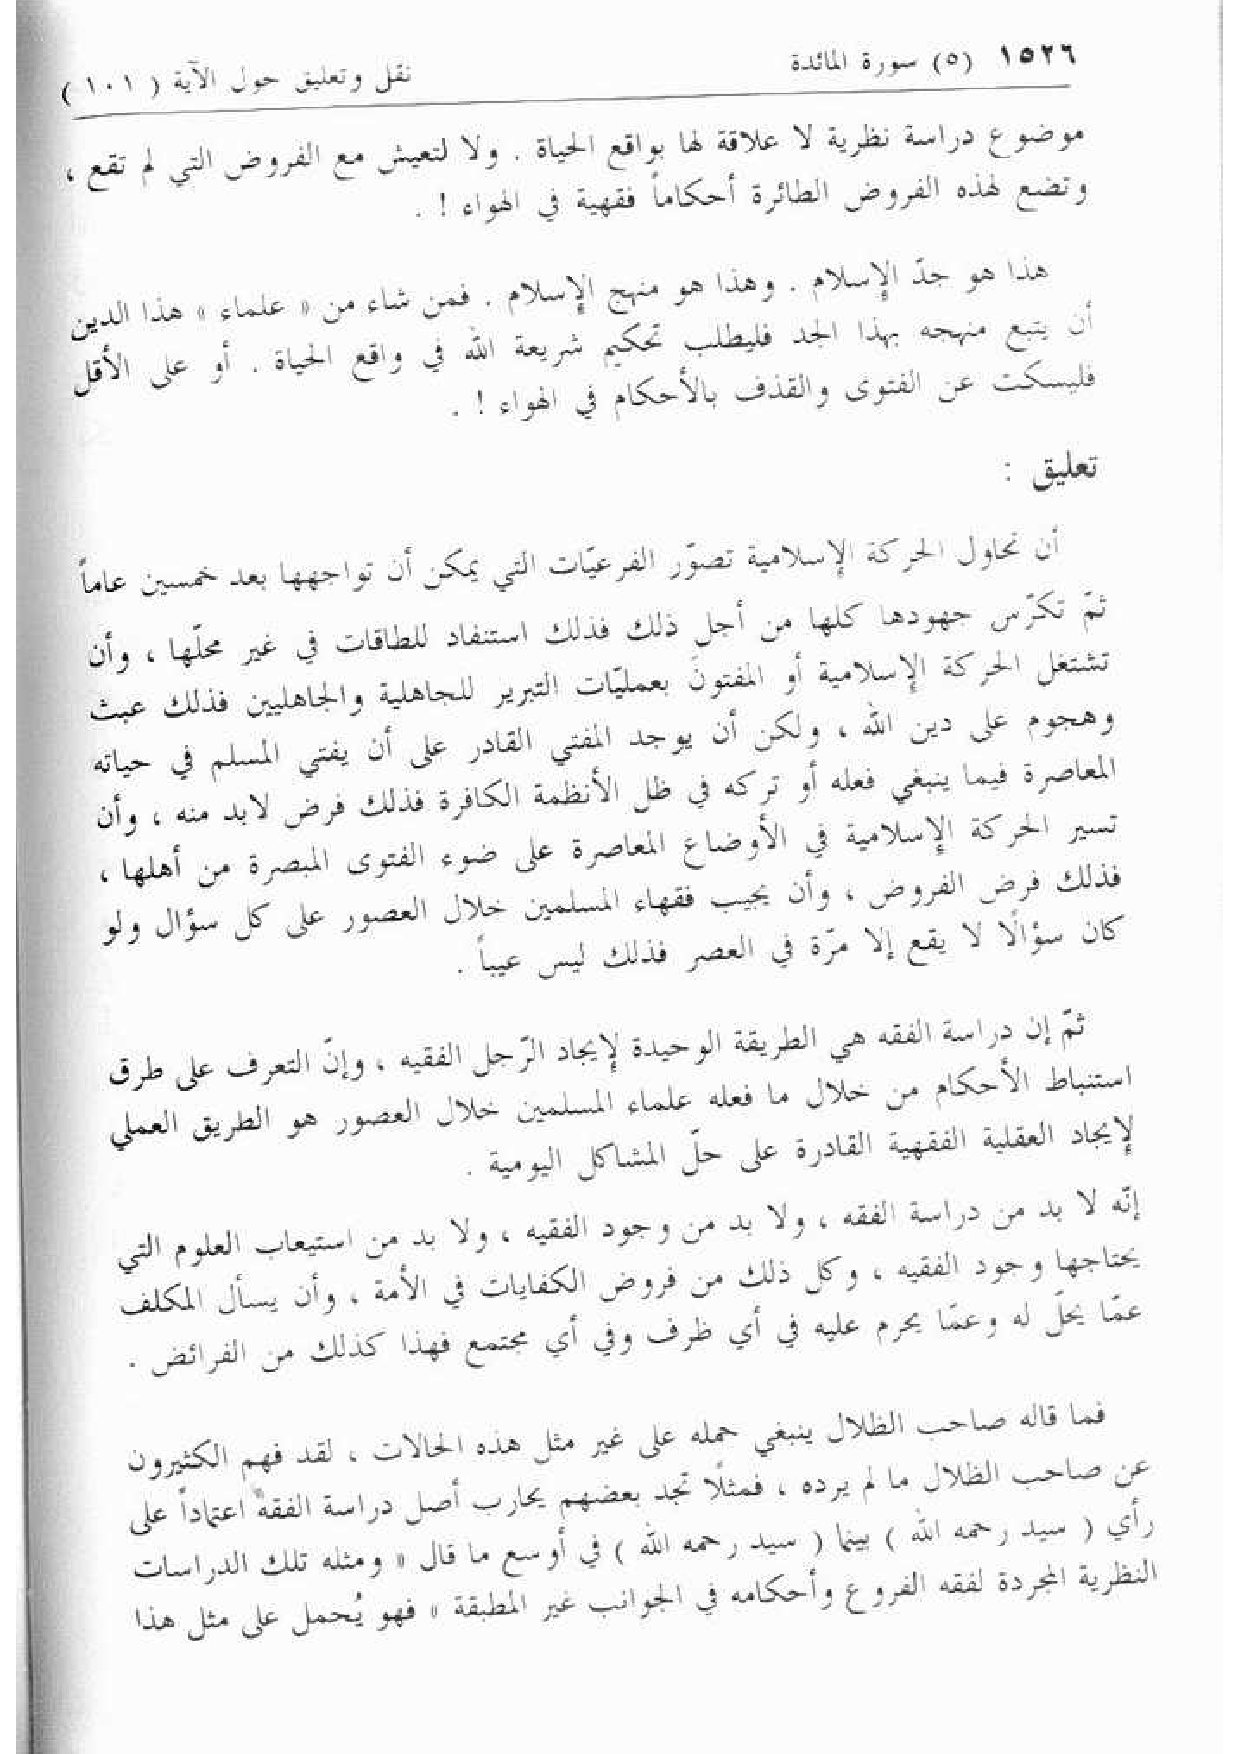 ١٥٢٦ (٥) سورة المائدة نقل وتعليق حول الآية ( ١٠١ )
موضوع دراسة نظرية لا علاقة لها بواقع الحياة . ولا لتعيش مع الفروض التي لم تقع ،
وتضع لهذه الفروض الطائرة أحكاماً فقهية في الهواء ! .
هذا هو جدّ الإسلام . وهذا هو منهج الإسلام . فمن شاء من « علماء » هذا الدين
أن يتبع منهجه بهذا الجد فليطلب تحكيم شريعة الله في واقع الحياة . أو على الأقل
فليسكت عن الفتوى والقذف بالأحكام في الهواء ! .
تعليق :
أن تحاول الحركة الإسلامية تصوّر الفرعيّات التي يمكن أن تواجهها بعد خمسين عاماً
ثمّ تكرّس جهودها كلها من أجل ذلك فذلك استنفاد للطاقات في غير محلّها ، وأن
تشتغل الحركة الإسلامية أو المفتونَ بعمليّات التبرير للجاهلية والجاهليين فذلك عبث
وهجوم على دين الله ، ولكن أن يوجد المفتي القادر على أن يفتي المسلم في حياته
المعاصرة فيما ينبغي فعله أو تركه في ظل الأنظمة الكافرة فذلك فرض لابد منه ، وأن
تسير الحركة الإسلامية في الأوضاع المعاصرة على ضوء الفتوى المبصرة من أهلها ،
فذلك فرض الفروض ، وأن يجيب فقهاء المسلمين خلال العصور على كل سؤال ولو
كان سؤالًا لا يقع إلا مرّة في العصر فذلك ليس عيباً .
ثمّ إن دراسة الفقه هي الطريقة الوحيدة لإيجاد الرّجل الفقيه ، وإنّ التعرف على طرق
استنباط الأحكام من خلال ما فعله علماء المسلمين خلال العصور هو الطريق العملي
لإيجاد العقلية الفقهية القادرة على حلّ المشاكل اليومية .
إنّه لا بد من دراسة الفقه ، ولا بد من وجود الفقيه ، ولا بد من استيعاب العلوم التي
يحتاجها وجود الفقيه ، وكل ذلك من فروض الكفايات في الأمة ، وأن يسأل المكلف
عمّا يحلّ له وعمّا يحرم عليه في أي ظرف وفي أي مجتمع فهذا كذلك من الفرائض .
فما قاله صاحب الظلال ينبغي حمله على غير مثل هذه الحالات ، لقد فهم الكثيرون
عن صاحب الظلال ما لم يرده ، فمثلًا تجد بعضهم يحارب أصل دراسة الفقه اعتماداً على
رأي ( سيد رحمه الله ) بينما ( سيد رحمه الله ) في أوسع ما قال « ومثله تلك الدراسات
النظرية المجردة لفقه الفروع وأحكامه في الجوانب غير المطبقة » فهو يُحمل على مثل هذا